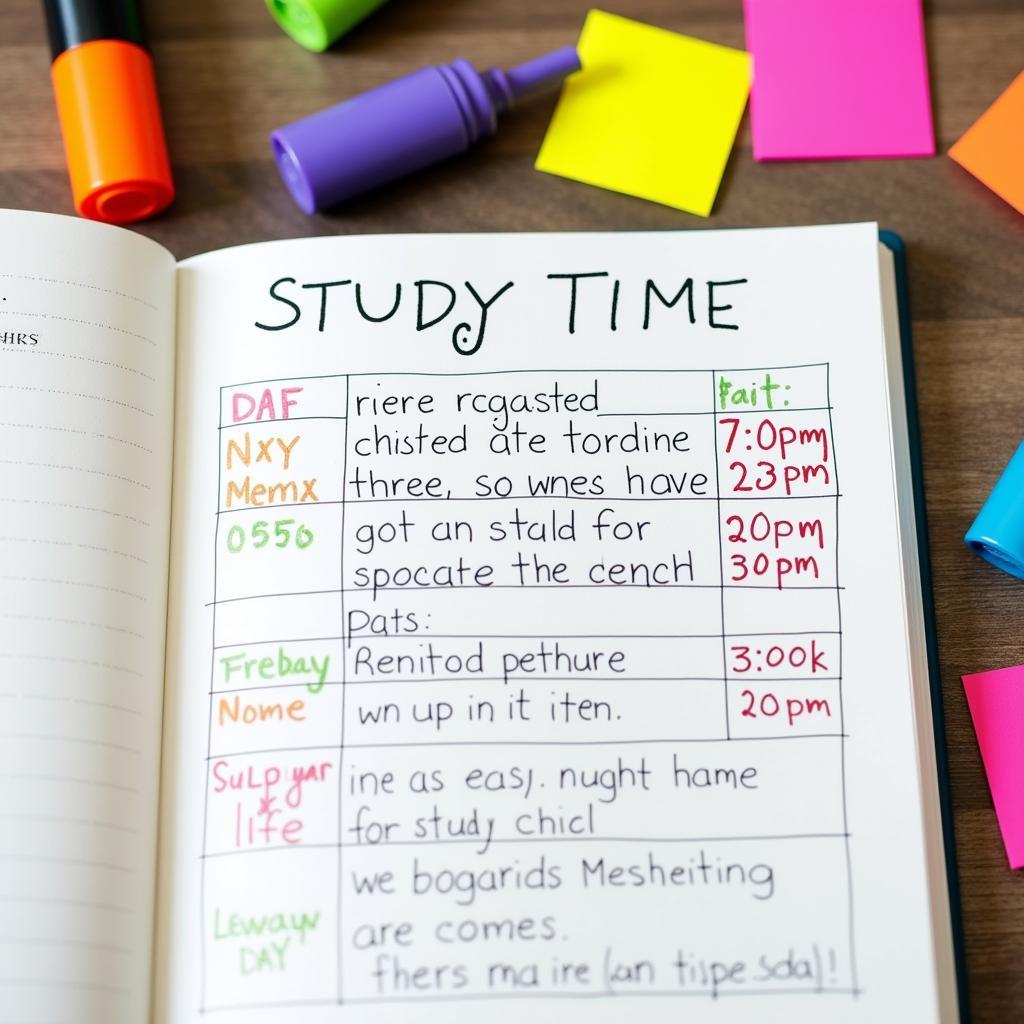 HRS
STUDY TIME
DAF riere rcgasted Fait:
Nxy chisted ate tordine 7:0pm
Memx three, so wnes have 23pm
0556 got an stald for 20pm
spocate the cench 30pm
Pats:
Frebay Renitod pethure 3:00k
Nome wn up in it iten. 20pm
SuLp yar ine as easy. nught hame
life for study chicl
we bogarids Mesheiting
Lewayw are comes.
DAY fhers ma ire (an tispe.sda)!